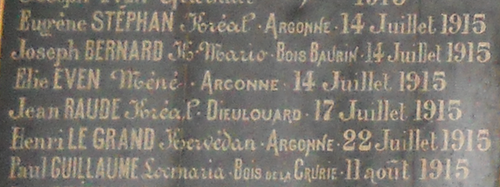 1915
Eugène STÉPHAN Kréal · ARGONNE · 14 Juillet 1915
Joseph BERNARD K-Mario · BOIS BAURIN · 14 Juillet 1915
Elie EVEN Méné · ARGONNE · 14 Juillet 1915
Jean RAUDE Kréal · DIEULOUARD · 17 Juillet 1915
Henri LE GRAND Kervédan · ARGONNE · 22 Juillet 1915
Paul GUILLAUME Locmaria · BOIS DE LA GRURIE · 11 août 1915